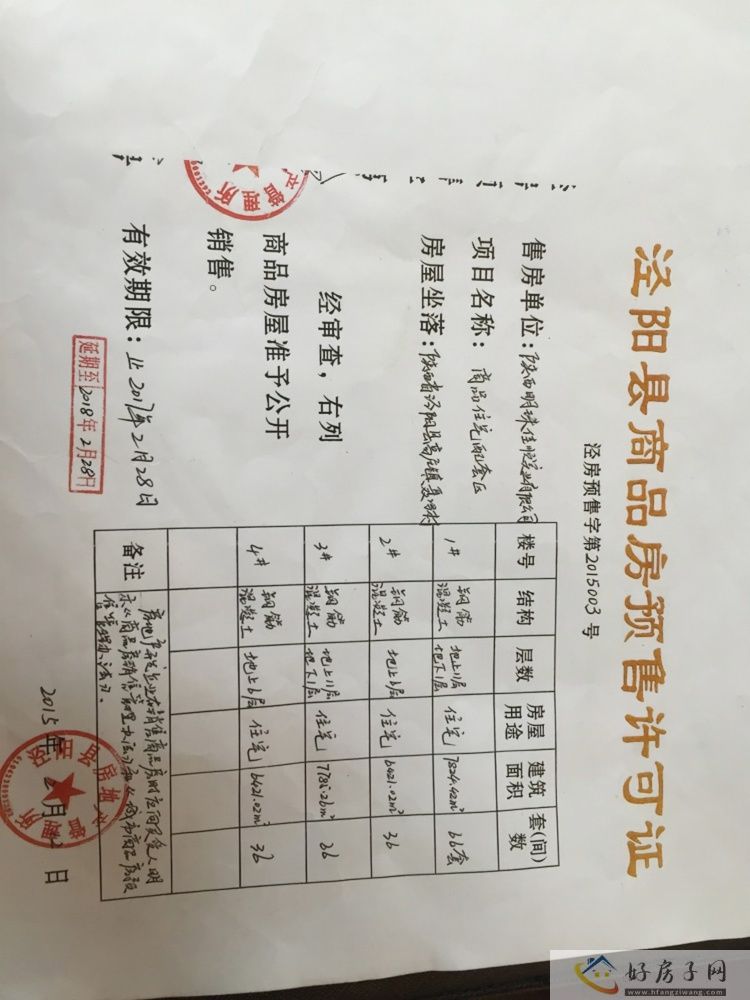 泾阳县商品房预售许可证
泾房预售字第2015003号
售房单位：陕西明珠佳悦实业有限公司
项目名称：商品住宅配套区
房屋坐落：陕西省泾阳县高庄镇
经审查，右列
商品房屋准予公开
销售。
有效期限：止2017年2月28日
延期至2018年2月28日
楼号 结构 层数 房屋用途 建筑面积 套(间)数
1# 钢筋混凝土 地上11层 地下1层 住宅 7824.42m² 66套
2# 钢筋混凝土 地上6层 住宅 6421.02m² 36
3# 钢筋混凝土 地上11层 地下1层 住宅 m² 66
4# 钢筋混凝土 地上6层 住宅 6421.02m² 36
备注
房地产开发企业在销售商品房时应向买受人明
示《商品房销售管理办法》和《城市商品房预
售管理办法》。
2015年2月12日
好房子网
www.hfangziwang.com